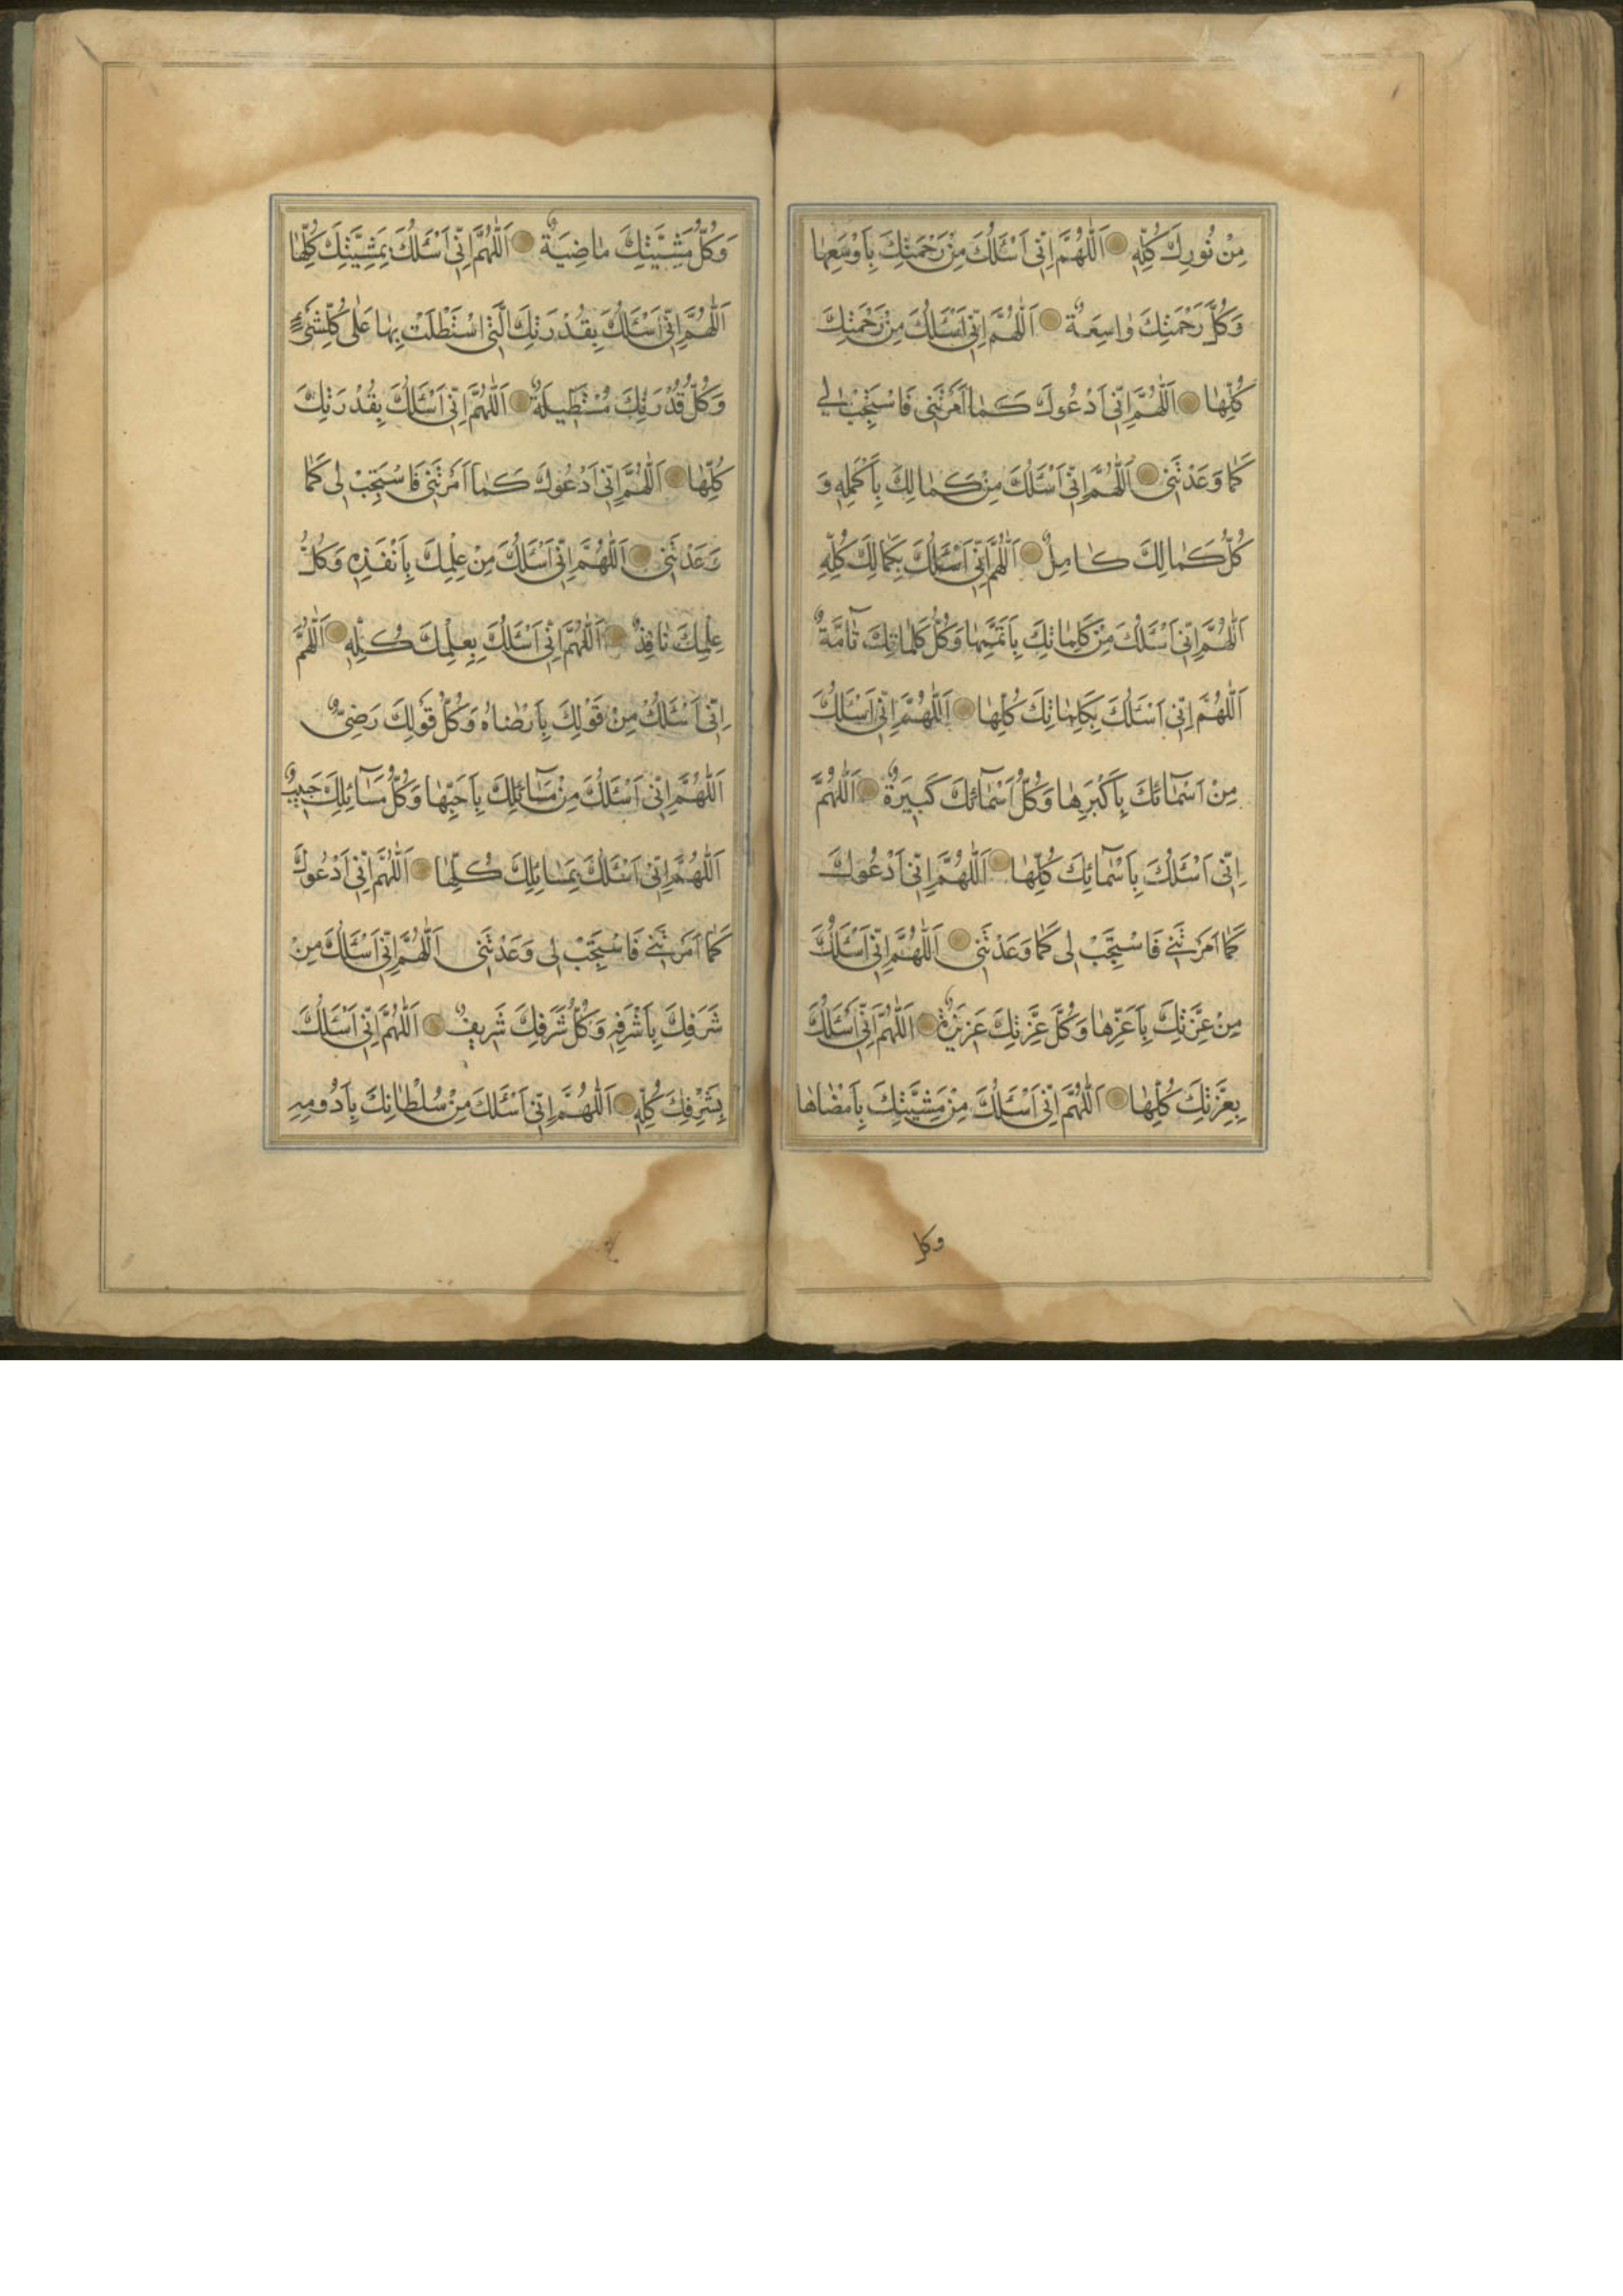 مِنْ نُورِكَ كُلِّهِ اَللّٰهُمَّ اِنّى اَسْئَلُكَ مِنْ رَحْمَتِكَ بِاَوْسَعِهٰا
وَكُلُّ رَحْمَتِكَ وٰاسِعَةٌ اَللّٰهُمَّ اِنّى اَسْئَلُكَ مِنْ رَحْمَتِكَ
كُلِّهٰا اَللّٰهُمَّ اِنّى اَدْعُوكَ كَمٰا اَمَرْتَنى فَاسْتَجِبْ لى
كَمٰا وَعَدْتَنى اَللّٰهُمَّ اِنّى اَسْئَلُكَ مِنْ كَمٰالِكَ بِاَكْمَلِهِ وَ
كُلُّ كَمٰالِكَ كٰامِلٌ اَللّٰهُمَّ اِنّى اَسْئَلُكَ بِكَمٰالِكَ كُلِّهِ
اَللّٰهُمَّ اِنّى اَسْئَلُكَ مِنْ كَلِمٰاتِكَ بِاَتَمِّهٰا وَكُلُّ كَلِمٰاتِكَ تٰامَّةٌ
اَللّٰهُمَّ اِنّى اَسْئَلُكَ بِكَلِمٰاتِكَ كُلِّهٰا اَللّٰهُمَّ اِنّى اَسْئَلُكَ
مِنْ اَسْمٰائِكَ بِاَكْبَرِهٰا وَكُلُّ اَسْمٰائِكَ كَبيرَةٌ اَللّٰهُمَّ
اِنّى اَسْئَلُكَ بِاَسْمٰائِكَ كُلِّهٰا اَللّٰهُمَّ اِنّى اَدْعُوكَ
كَمٰا اَمَرْتَنى فَاسْتَجِبْ لى كَمٰا وَعَدْتَنى اَللّٰهُمَّ اِنّى اَسْئَلُكَ
مِنْ عِزَّتِكَ بِاَعَزِّهٰا وَكُلُّ عِزَّتِكَ عَزيزَةٌ اَللّٰهُمَّ اِنّى اَسْئَلُكَ
بِعِزَّتِكَ كُلِّهٰا اَللّٰهُمَّ اِنّى اَسْئَلُكَ مِنْ مَشِيَّتِكَ بِاَمْضٰاهٰا
وكل
وَكُلُّ مَشِيَّتِكَ مٰاضِيَةٌ اَللّٰهُمَّ اِنّى اَسْئَلُكَ بِمَشِيَّتِكَ كُلِّهٰا
اَللّٰهُمَّ اِنّى اَسْئَلُكَ بِقُدْرَتِكَ الَّتى اسْتَطَلْتَ بِهٰا عَلٰى كُلِّ شَىْءٍ
وَكُلُّ قُدْرَتِكَ مُسْتَطيلَةٌ اَللّٰهُمَّ اِنّى اَسْئَلُكَ بِقُدْرَتِكَ
كُلِّهٰا اَللّٰهُمَّ اِنّى اَدْعُوكَ كَمٰا اَمَرْتَنى فَاسْتَجِبْ لى كَمٰا
وَعَدْتَنى اَللّٰهُمَّ اِنّى اَسْئَلُكَ مِنْ عِلْمِكَ بِاَنْفَذِهِ وَكُلُّ
عِلْمِكَ نٰافِذٌ اَللّٰهُمَّ اِنّى اَسْئَلُكَ بِعِلْمِكَ كُلِّهِ اَللّٰهُمَّ
اِنّى اَسْئَلُكَ مِنْ قَوْلِكَ بِاَرْضٰاهُ وَكُلُّ قَوْلِكَ رَضِىٌّ
اَللّٰهُمَّ اِنّى اَسْئَلُكَ مِنْ مَسٰائِلِكَ بِاَحَبِّهٰا وَكُلُّ مَسٰائِلِكَ حَبيبٌ
اَللّٰهُمَّ اِنّى اَسْئَلُكَ بِمَسٰائِلِكَ كُلِّهٰا اَللّٰهُمَّ اِنّى اَدْعُوكَ
كَمٰا اَمَرْتَنى فَاسْتَجِبْ لى وَعَدْتَنى اَللّٰهُمَّ اِنّى اَسْئَلُكَ مِنْ
شَرَفِكَ بِاَشْرَفِهِ وَكُلُّ شَرَفِكَ شَريفٌ اَللّٰهُمَّ اِنّى اَسْئَلُكَ
بِشَرَفِكَ كُلِّهِ اَللّٰهُمَّ اِنّى اَسْئَلُكَ مِنْ سُلْطٰانِكَ بِاَدْوَمِهِ